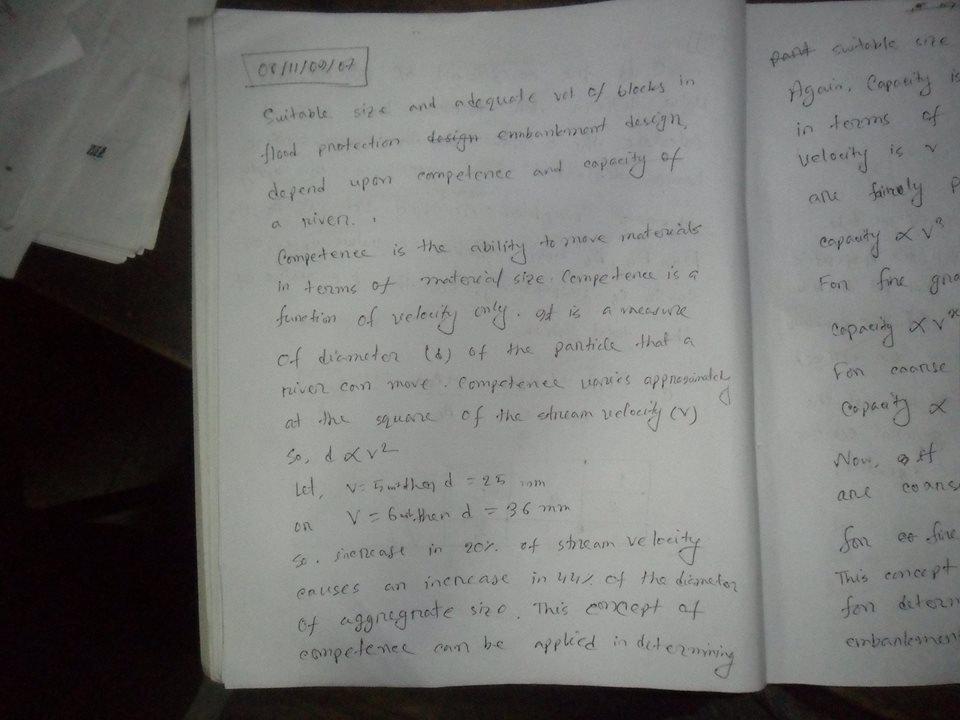 08/11/09/07
Suitable size and adequate vol of blocks in
flood protection design embankment design,
depend upon competence and capacity of
a river.
Competence is the ability to move materials
in terms of material size. Competence is a
function of velocity only. It is a measure
of diameter (d) of the particle that a
river can move. Competence varies approximately
at the square of the stream velocity (v)
So, d ∝ v²
Let, v = 5 unit then d = 25 mm
or V = 6 unit, then d = 36 mm
So, increase in 20% of stream velocity
causes an increase in 44% of the diameter
of aggregrate size. This concept of
competence can be applied in determining
part suitable size
Again, Capacity is
in terms of
velocity is v
are fairely
capacity ∝ v³
For fine
capacity ∝ v
For coarse
Capacity ∝
Now, if
are
for fine
This concept
for